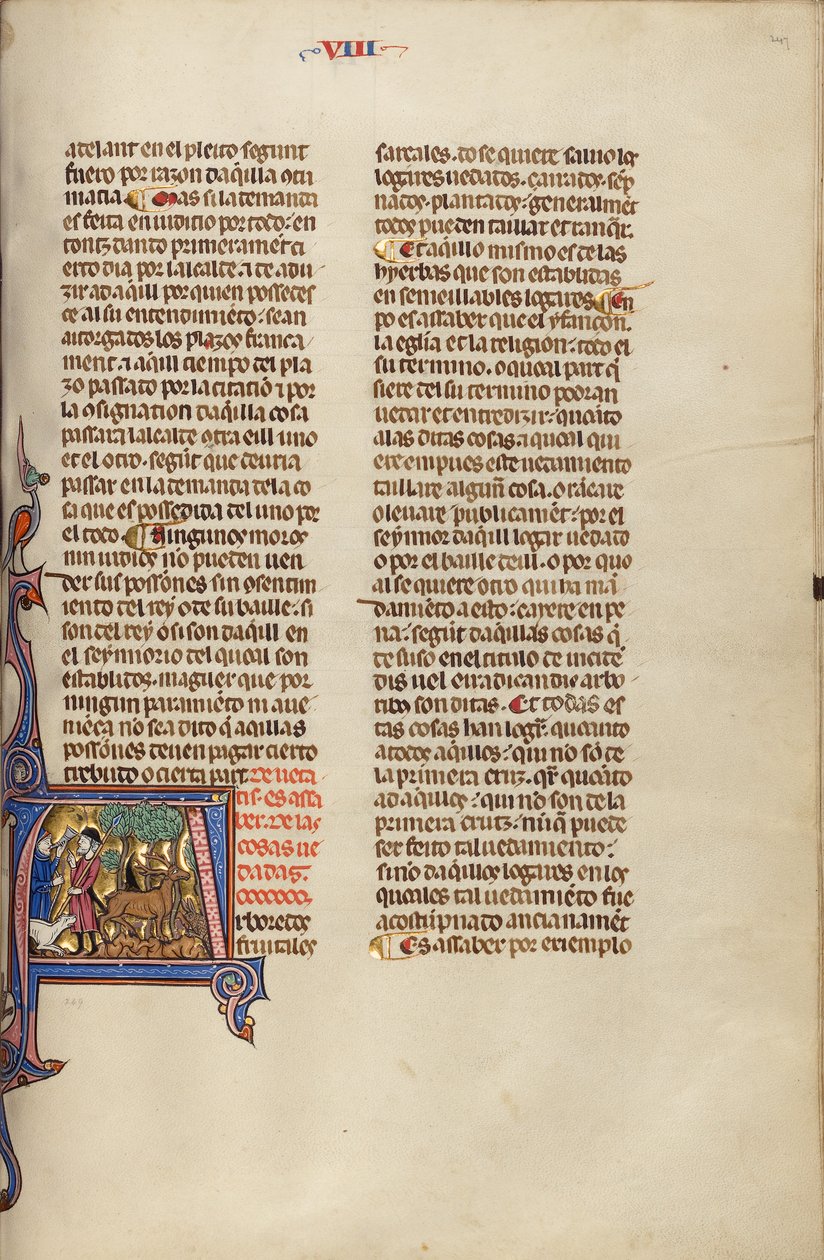 VIII
247
adelant en el pleito segunt
fuero por razon daq̃lla ↄtu
macia Mas si la demanda
es feita en iudicio por todo: en
tonz dando primerament ci
erto dia por lalcalde. ⁊ de adu
zir ad aq̃ill por quien possedes
ce al su entendimiẽto: sean
atorgados los plazos franca
ment. ⁊ aq̃ill tiempo del pla
zo passado por la citatiõ ⁊ por
la ↄsignation daq̃lla cosa
passara lalcalde ↄtra eill uno
et el otro. segũt que deuria
passar en la demanda de la co
sa que es possedida del uno por
el todo. Ningunos moros
nin iudios nõ pueden uen
der sus possiõnes sin ↄsentim
iento del rey o de su baille. si
son del rey o si son daq̃ill en
el seynnorio del quoal son
establidos. maguer que por
ningun paramiẽto ni aue
niẽça nõ sea dito q̃ aq̃llas
possiõnes deuen pagar cierto
trebudo o cierta part. De ueta
tis. es assa
ber. De las
cosas ue
dadas.
rboredos
fruitales
sareales. do se quiere saluo los
logares uedados. çarrados. sẽp
nados. plantados: generalmẽt
todos pueden taillar et rancar.
Et aq̃llo mismo es de las
hyerbas que son establidas
en semeillables logares. Em
po es assaber que el yfançon.
la eglia et la religion: todo el
su termino. o quoal part q̃
siere del su termino podran
uedar et entredizir: quoãto
a las ditas cosas. ⁊ quoal qui
ere empues este uedamiento
taillare algun̄ cosa. o rãcare
o leuare publicamẽt: por el
seynnor daq̃ill logar uedado
o por el baille deill. o por quo
al se quiere otro qui ha mã
damiẽto a esto: cayere en pe
na: segũt daq̃llas cosas q̃
de suso en el titulo de incide
dis uel eradicandis arbo
ribȝ son ditas. Et todas es
tas cosas han logr̃. quoanto
a todos aq̃llos: qui no sõ de
la primera cruz. qr̃ quoãto
ad aq̃llos: qui nõ son de la
primera crutz: niĩ q̃ puede
ser feito tal uedamiento:
sinõ daq̃llos logares en los
quoales tal uedamiẽto fue
acostũpnado ancianamẽt
Es assaber por exiemplo
249